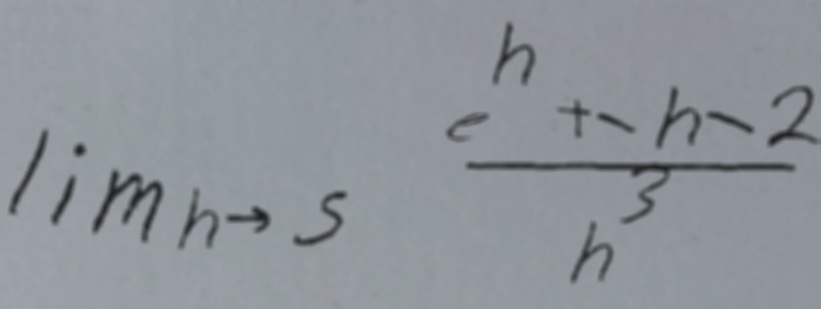 lim h→s (e^h + - h - 2) / h^3